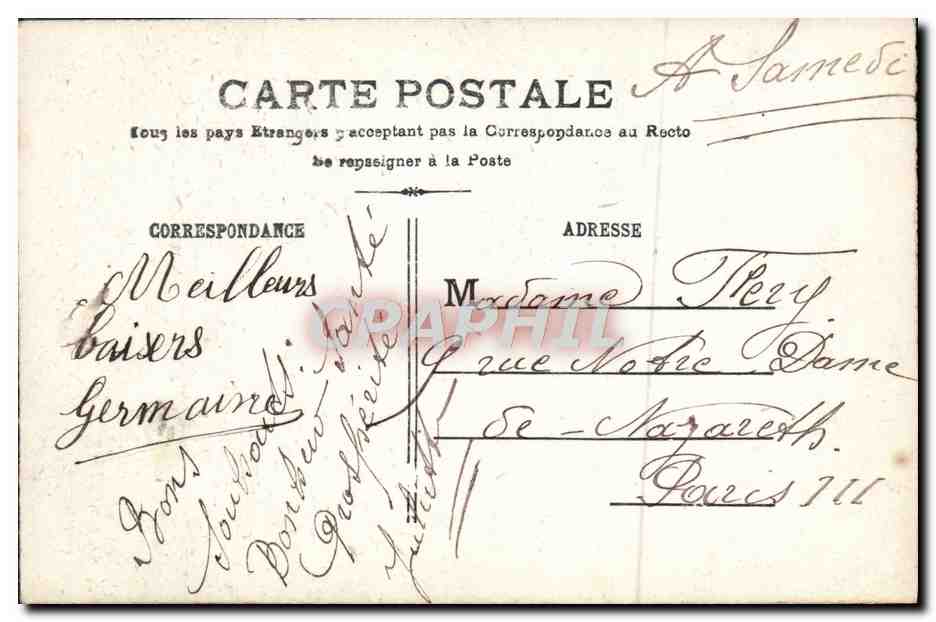 A Samedi
CARTE POSTALE
Tous les pays Etrangers n'acceptant pas la Correspondance au Recto
Se renseigner à la Poste
CORRESPONDANCE
Meilleurs
baisers
Germaine
Bons
Souhaits.
Bonheur Santé
Prospérité
ADRESSE
Madame Flery
9 rue Notre Dame
de - Nazareth
Paris III
CPAPHIL